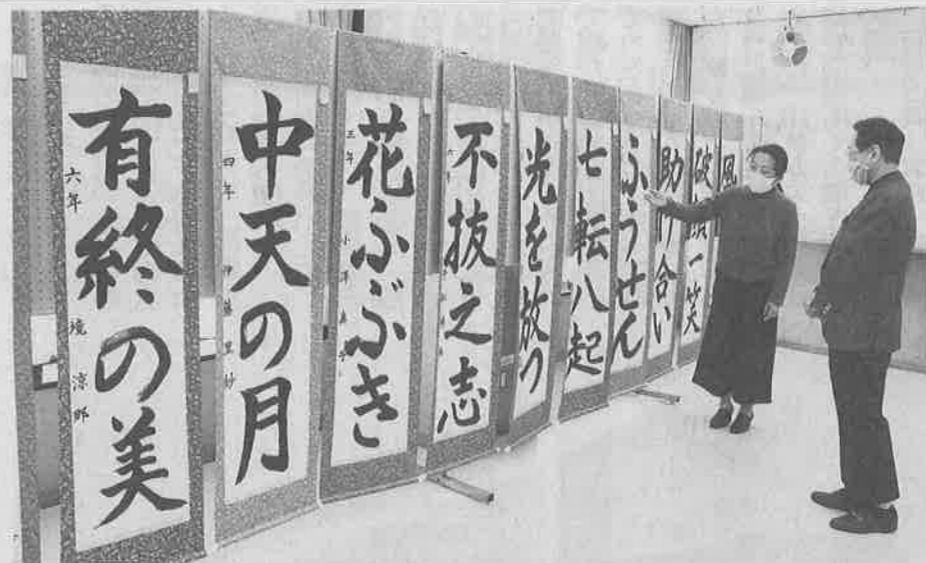 有終の美
六年 境 涼那
中天の月
四年 伊藤里紗
花ふぶき
三年
不抜之志
光を放つ
七転八起
ふうせん
助け合い
破顔一笑
風